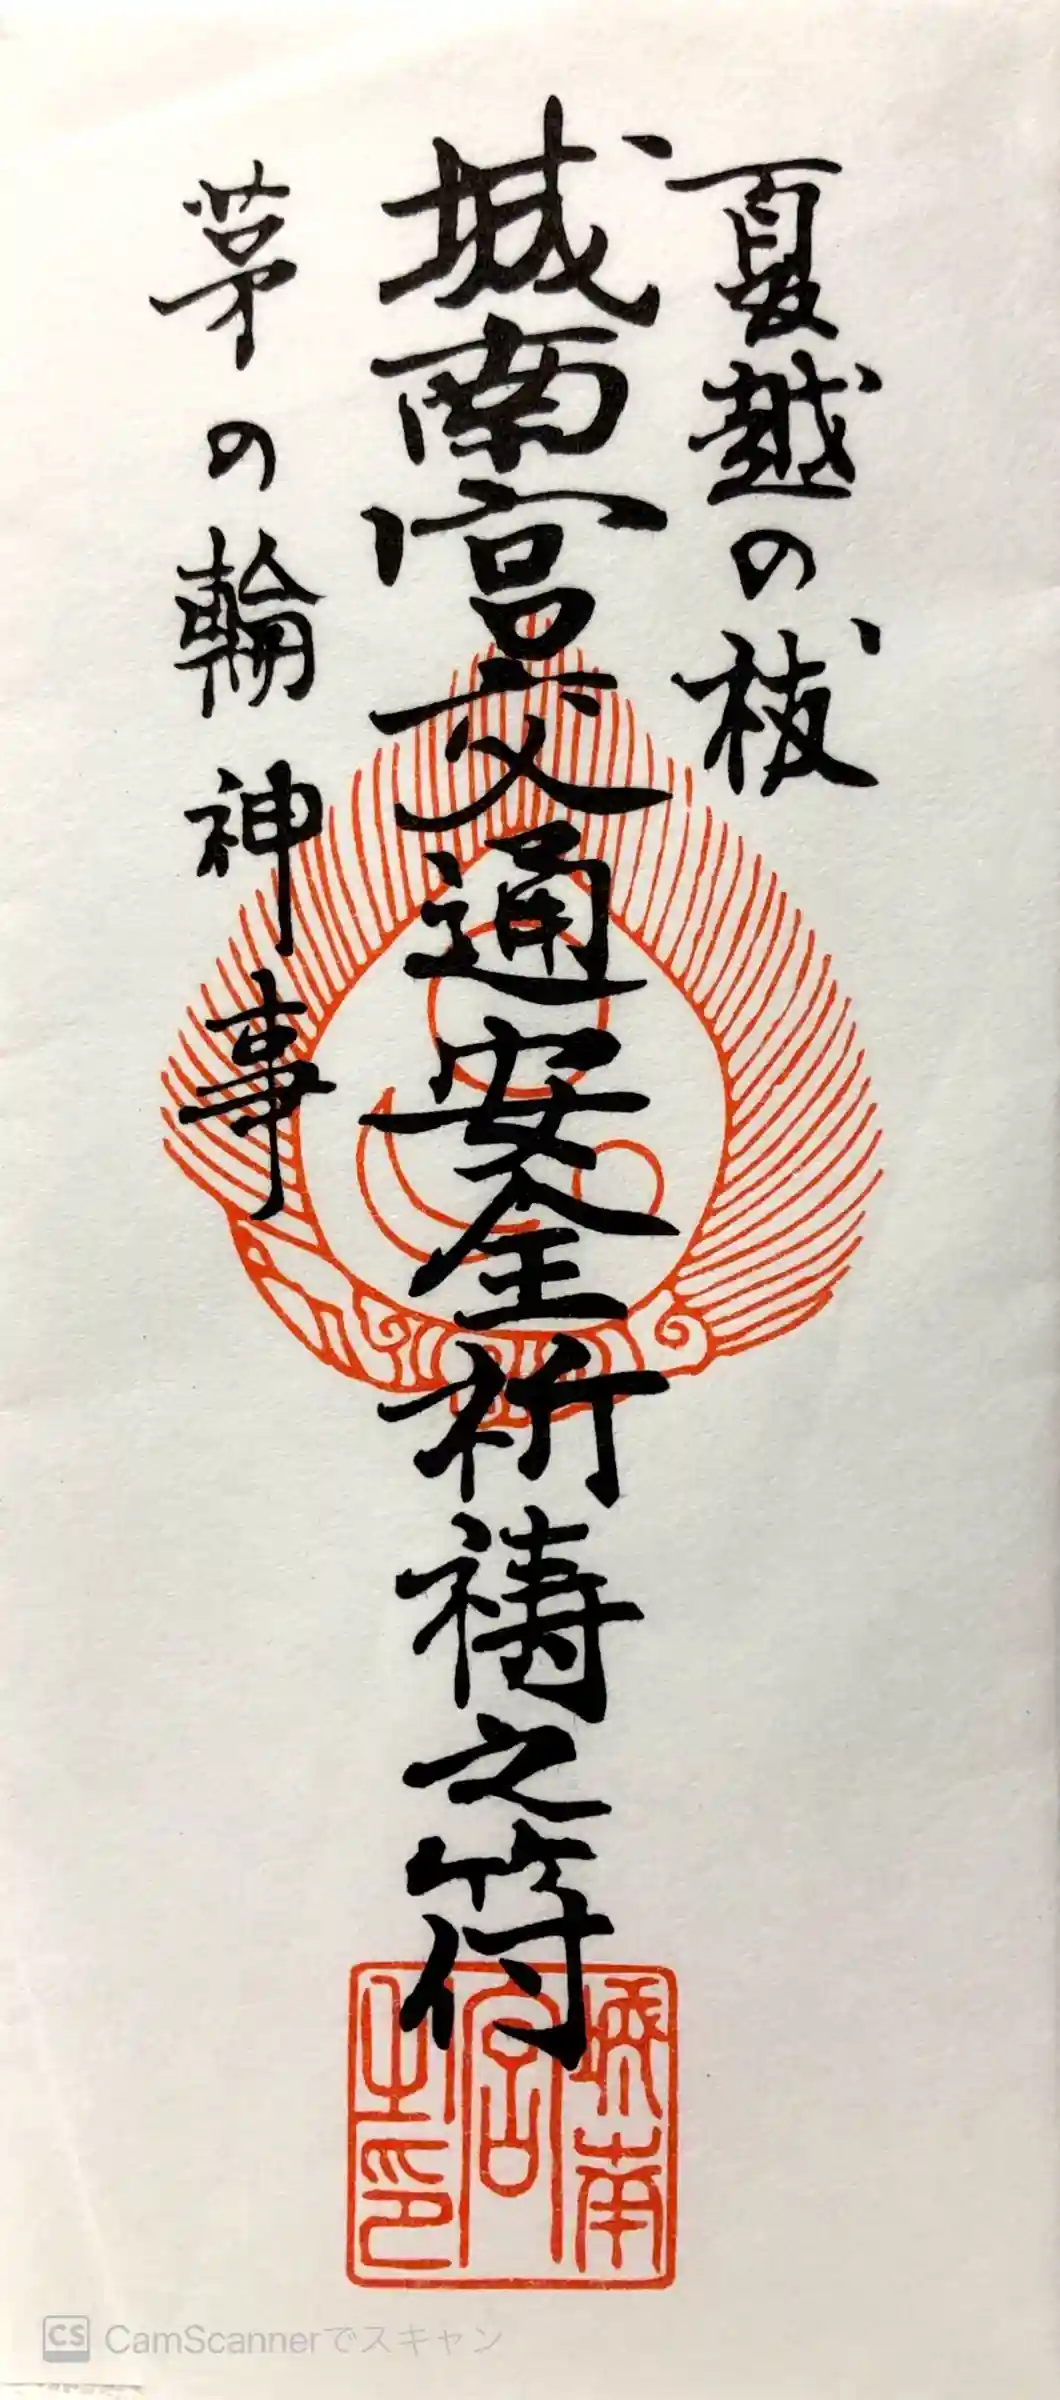 夏越の祓
城南宮交通安全祈祷之符
茅の輪神事
城南
宮
之印
CamScannerでスキャン
CS